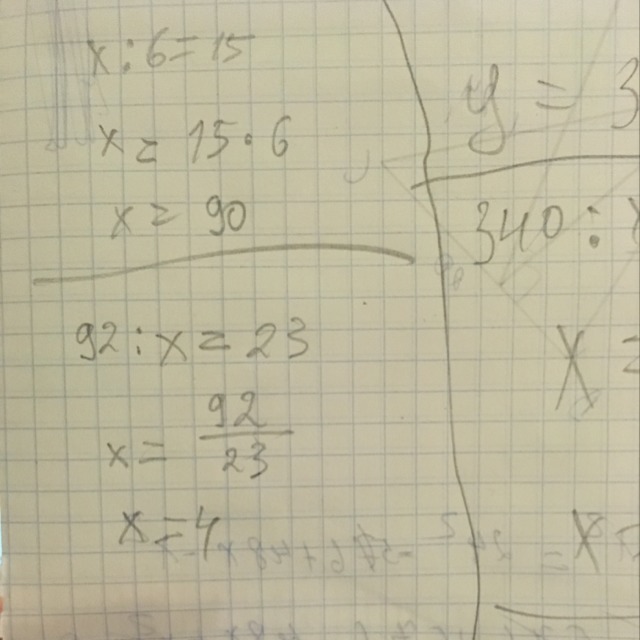 x:6=15
x=15·6
x=90
92:x=23
x=92/23
x=4
y=3
340:
x=
x=